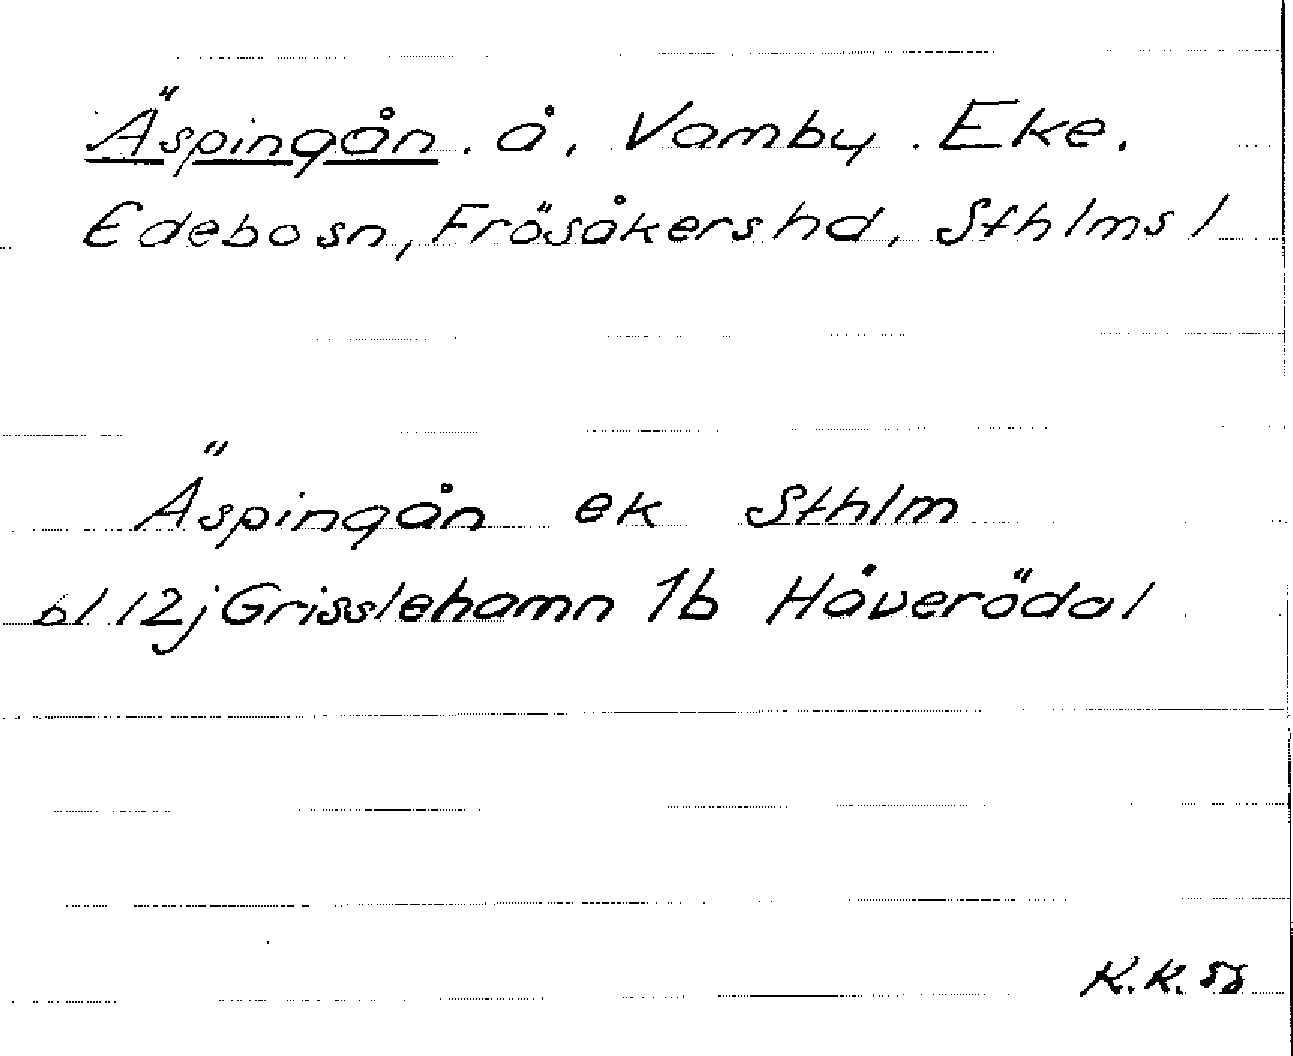 Äspingån . å, Vamby . Eke.
Edebo sn, Frösåkers hd, Sthlms l
Äspingån ek Sthlm
bl 12j Grisslehamn 1b Håverödal
K.K. 58